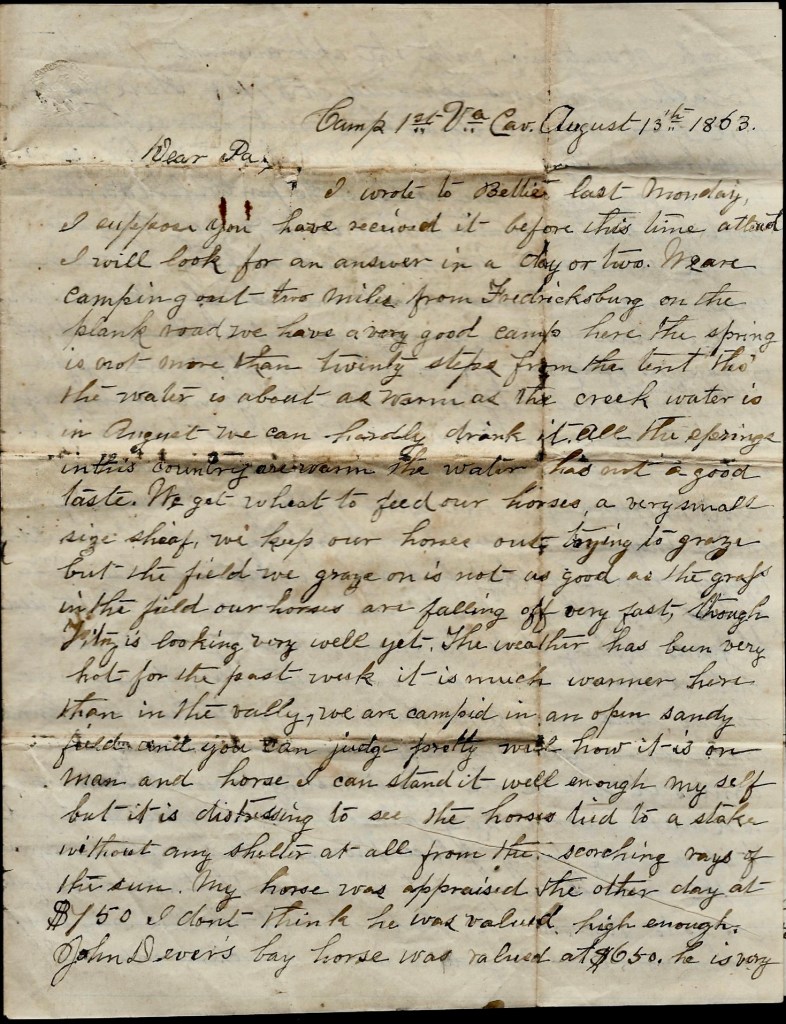 Camp 1st Va Cav. August 13th 1863.
Dear Pa,
I wrote to Bettie last Monday,
I suppose you have received it before this time
I will look for an answer in a day or two. We are
camping out two miles from Fredricksburg on the
plank road we have a very good camp here the spring
is not more than twenty steps from the tent tho'
the water is about as warm as the creek water is
in August we can hardly drink it. All the springs
in this country are warm the water has not a good
taste. We get wheat to feed our horses, a very small
size sheaf, we keep our horses out trying to graze
but the field we graze on is not as good as the grass
in the field our horses are falling off very fast, though
Fitz is looking very well yet. The weather has been very
hot for the past week it is much warmer here
than in the vally, we are camped in an open sandy
field and you can judge pretty well how it is on
man and horse I can stand it well enough my self
but it is distressing to see the horses tied to a stake
without any shelter at all from the scorching rays of
the sun. My horse was appraised the other day at
$750 I dont think he was valued high enough.
John Dever's bay horse was valued at $650. he is very